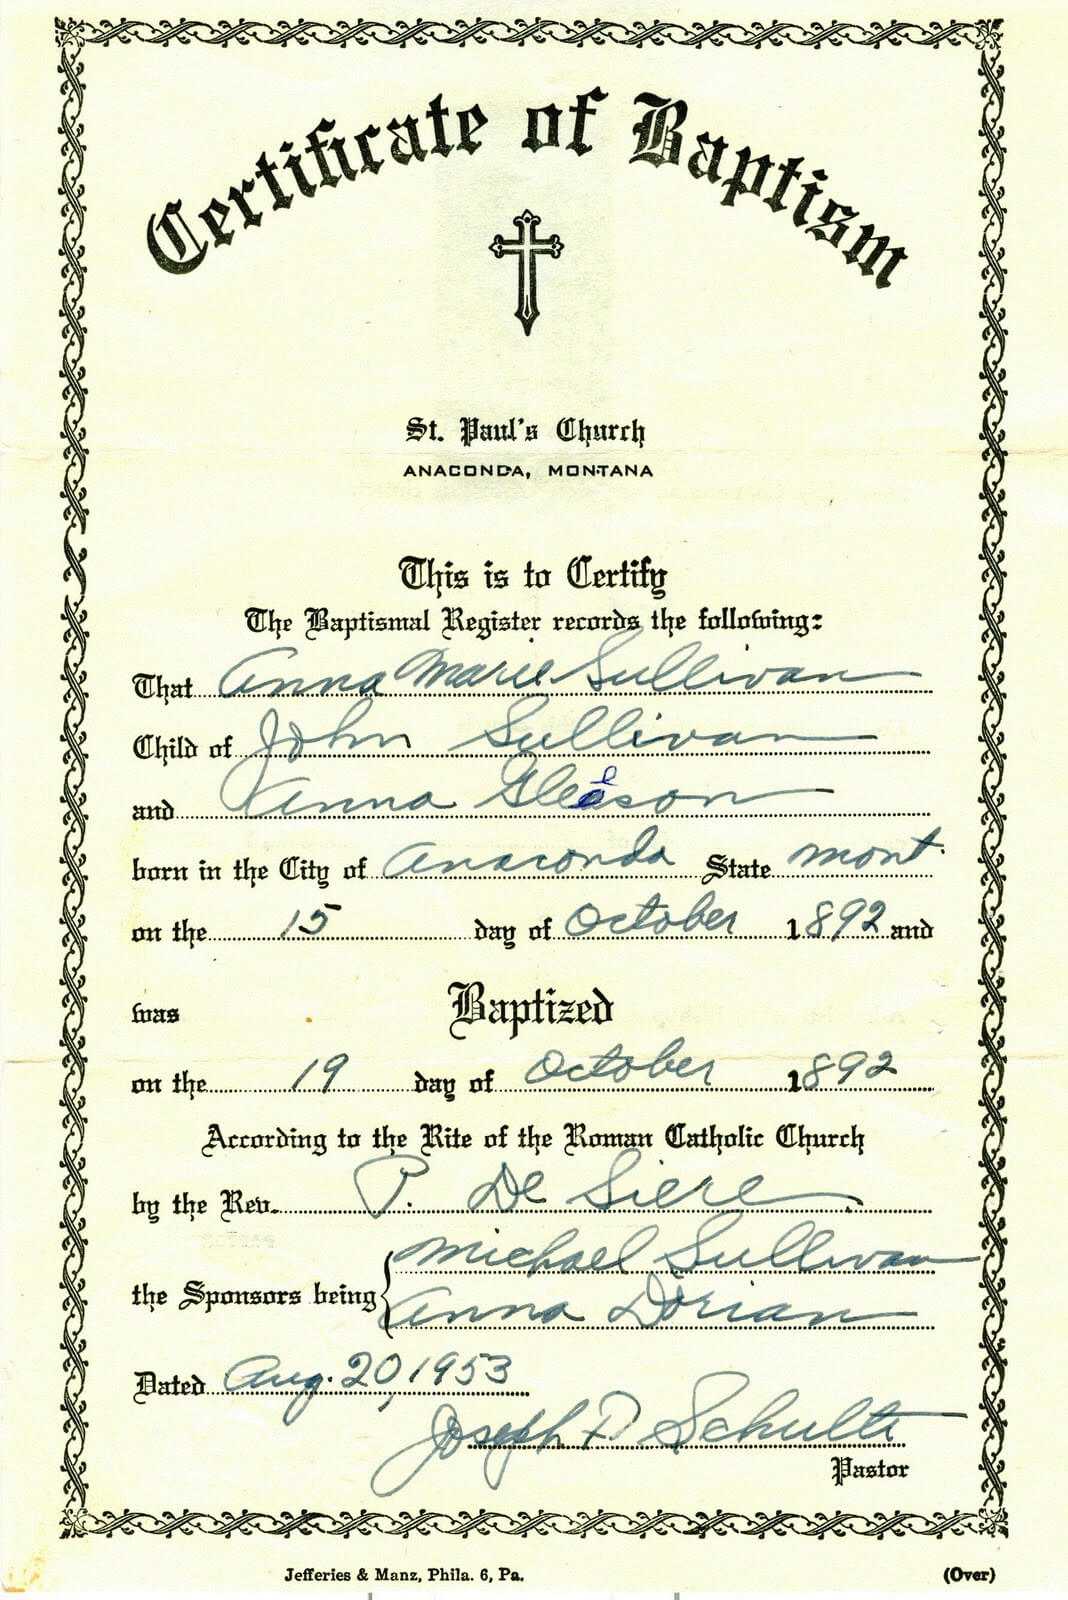 Certificate of Baptism
St. Paul's Church
ANACONDA, MONTANA
This is to Certify
The Baptismal Register records the following:
That Anna Marie Sullivan
Child of John Sullivan
and Anna Gleeson
born in the City of Anaconda State Mont.
on the 15 day of October 1892 and
was Baptized
on the 19 day of October 1892
According to the Rite of the Roman Catholic Church
by the Rev. P. De Siere
the Sponsors being Michael Sullivan
Anna Dorian
Dated Aug. 20, 1953
Joseph P. Schulte
Pastor
Jefferies & Manz, Phila. 6, Pa.
(Over)